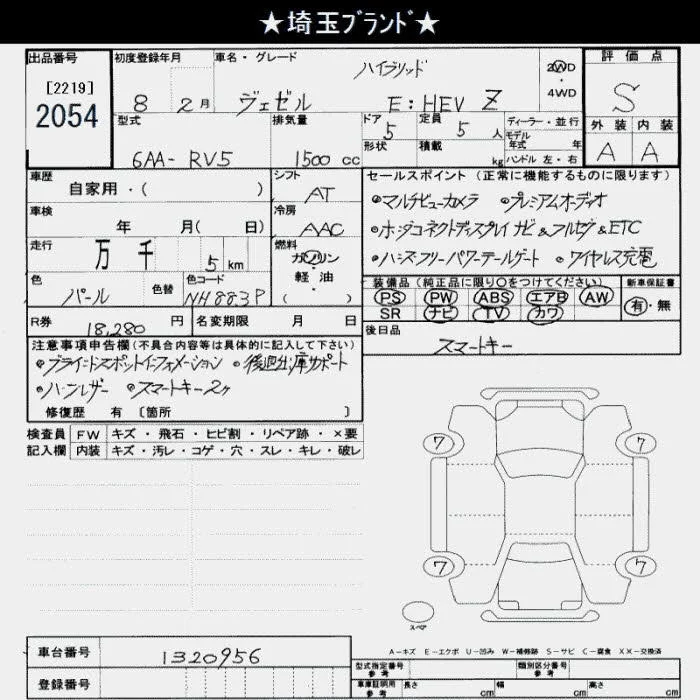 ★埼玉ブランド★
出品番号 初度登録年月 車名・グレード ハイブリッド 2WD・4WD 評価点
[2219]
2054
8 2月 ヴェゼル E:HEV Z S
型式 排気量 ドア 定員 ディーラー・並行 外装 内装
6AA-RV5 1500 cc 5 5 人 モデル年式 年 A A
形状 積載 kg ハンドル 左・右
車歴 自家用・( ) シフト AT
セールスポイント (正常に機能するものに限ります)
車検 年 月( 日) 冷房 AAC
•マルチビューカメラ •プレミアムオーディオ
•ホンダコネクトディスプレイ ナビ&フルセグ&ETC
•ハンズフリーパワーテールゲート •ワイヤレス充電
走行 万 千 5 km 燃料 ガソリン・軽・油 ( )
色 パール 色替 色コード NH883P
装備品 (純正品に限り○をつけてください) 新車保証書
PS PW ABS エアB AW 有・無
SR ナビ TV カワ
R券 18,280 円 名変期限 月 日
後日品 スマートキー
注意事項申告欄 (不具合内容等は具体的に記入して下さい)
•ブラインドスポットインフォメーション •後退出庫サポート
•ハーフレザー •スマートキー2ヶ
修復歴 有 〔箇所 〕
検査員 FW キズ・飛石・ヒビ割・リペア跡・×要
記入欄 内装 キズ・汚レ・コゲ・穴・スレ・キレ・破レ
7 7
7 7
スペア
A-キズ E-エクボ U-凹み W-補修跡 S-サビ C-腐食 XX-交換済
車台番号 1320956
登録番号
型式指定番号 参考 類別区分番号 参考
車庫証明用 参考 長さ cm 幅 cm 高さ cm